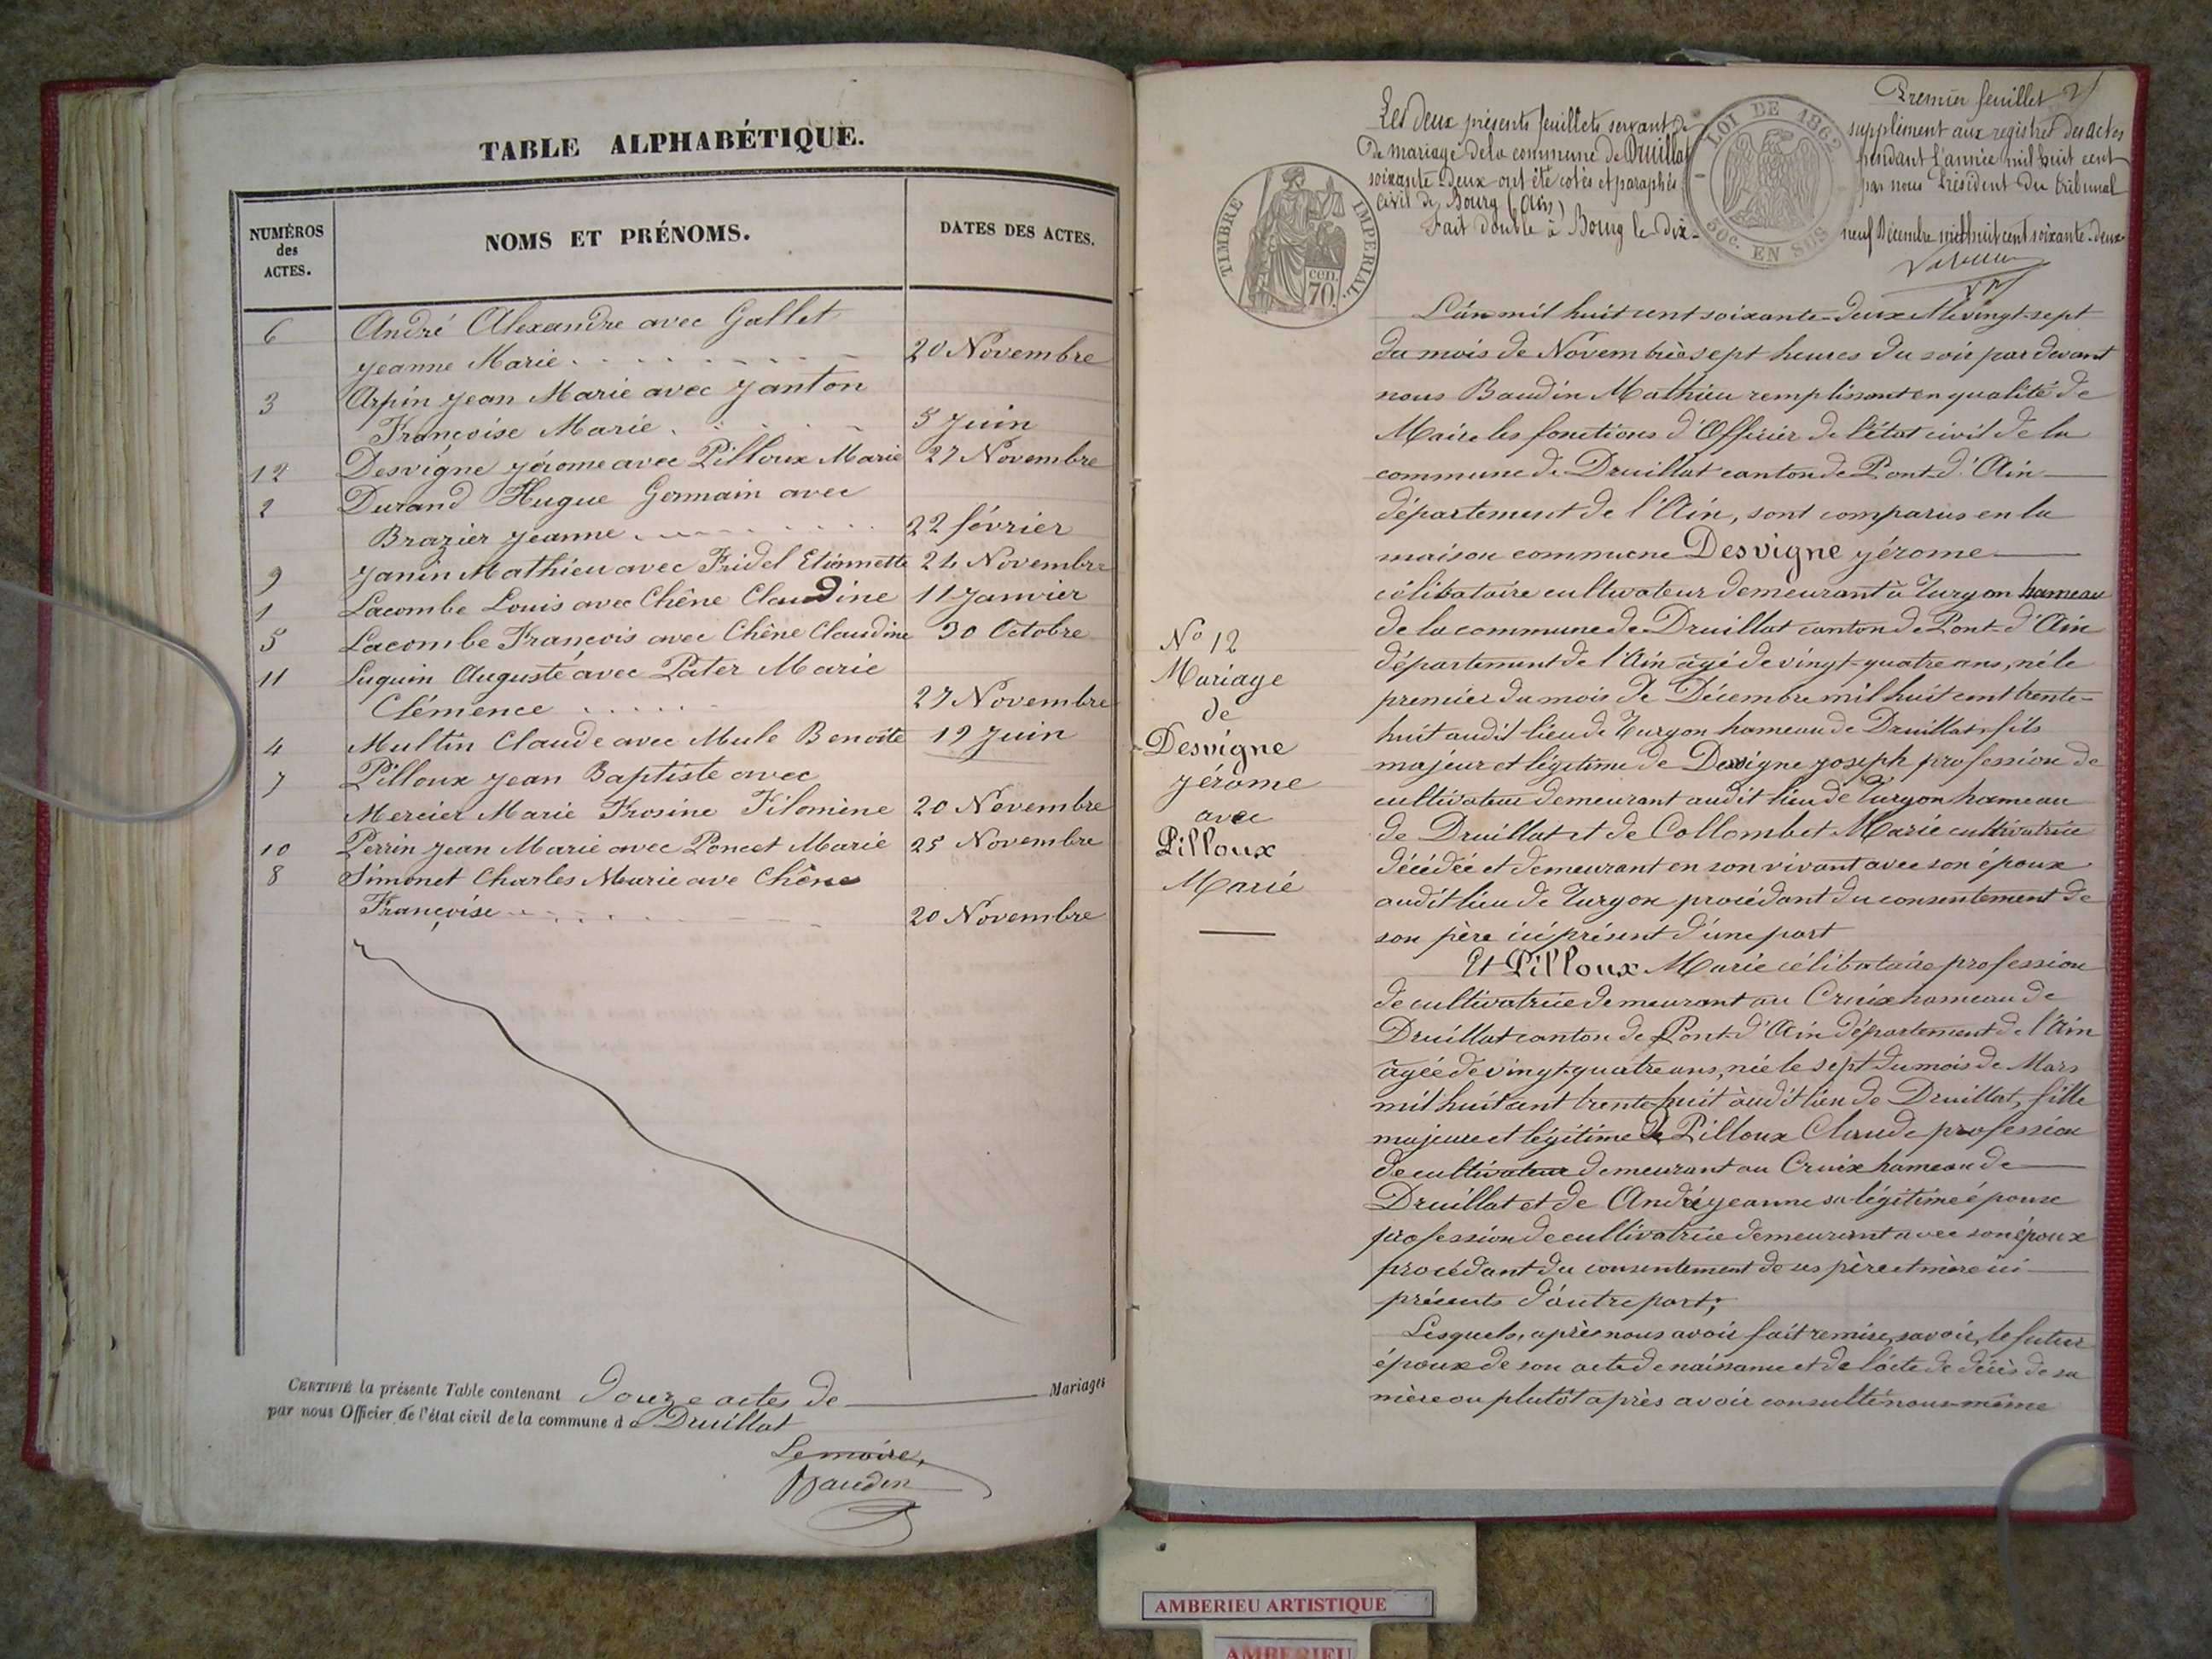 TABLE ALPHABÉTIQUE.
NUMÉROS des ACTES.
NOMS ET PRÉNOMS.
DATES DES ACTES.
6 André Alexandre avec Gallet
Jeanne Marie 20 Novembre
3 Arpin Jean Marie avec Janton
Françoise Marie 5 Juin
12 Desvigne Jérome avec Pilloux Marie 27 Novembre
2 Durand Hugue Germain avec
Brazier Jeanne 22 février
9 Janin Mathieu avec Fridel Etiennette 24 Novembre
1 Lacombe Louis avec Chêne Claudine 11 Janvier
5 Lacombe François avec Chêne Claudine 30 Octobre
11 Luquin Auguste avec Pater Marie
Clémence 27 Novembre
4 Multin Claude avec Mule Benoîte 19 Juin
7 Pilloux Jean Baptiste avec
Mercier Marie Frosine Filomène 20 Novembre
10 Perrin Jean Marie avec Poncet Marie 25 Novembre
8 Simonet Charles Marie ave Chêne
Françoise 20 Novembre
CERTIFIÉ la présente Table contenant Douze actes de Mariages
par nous Officier de l'état civil de la commune d e Druillat
Le maire,
Baudin
Premier feuillet
Les deux présents feuillets servant de supplément aux registres des actes
de mariage de la commune de Druillat pendant l'année mil huit cent
soixante-deux ont été cotés et paraphés par nous Président du tribunal
civil de Bourg (Ain)
Fait double à Bourg le dix-neuf Décembre mil huit cent soixante-deux
TIMBRE IMPERIAL.
cen. 70.
LOI DE 1862
50c. EN SUS
L'an mil huit cent soixante-deux et le vingt-sept
du mois de Novembre à sept heures du soir par devant
nous Baudin Mathieu remplissant en qualité de
Maire les fonctions d'Officier de l'état civil de la
commune de Druillat canton de Pont-d'Ain
département de l'Ain, sont comparus en la
maison commune Desvigne Jérome
célibataire cultivateur demeurant à Turgon hameau
de la commune de Druillat canton de Pont-d'Ain
département de l'Ain âgé de vingt-quatre ans, né le
premier du mois de Décembre mil huit cent trente-
huit audit lieu de Turgon hameau de Druillat, fils
majeur et légitime de Desvigne Joseph profession de
cultivateur demeurant audit lieu de Turgon hameau
de Druillat et de Collombet Marie cultivatrice
décédée et demeurant en son vivant avec son époux
audit lieu de Turgon procédant du consentement de
son père ici présent d'une part
Et Pilloux Marie célibataire profession
de cultivatrice demeurant au Cruix hameau de
Druillat canton de Pont-d'Ain département de l'Ain
âgée de vingt-quatre ans, née le sept du mois de Mars
mil huit cent trente huit audit lieu de Druillat, fille
majeure et légitime de Pilloux Claude profession
de cultivateur demeurant au Cruix hameau de
Druillat et de André Jeanne sa légitime épouse
profession de cultivatrice demeurant avec son époux
procédant du consentement de ses père et mère ici
présents d'autre part;
Lesquels, après nous avoir fait remise, savoir, le futur
époux de son acte de naissance et de l'acte de décès de sa
mère ou plutôt après avoir consulté nous-même
No 12
Mariage
de
Desvigne
Jérome
avec
Pilloux
Marie
AMBERIEU ARTISTIQUE
AMBERIEU